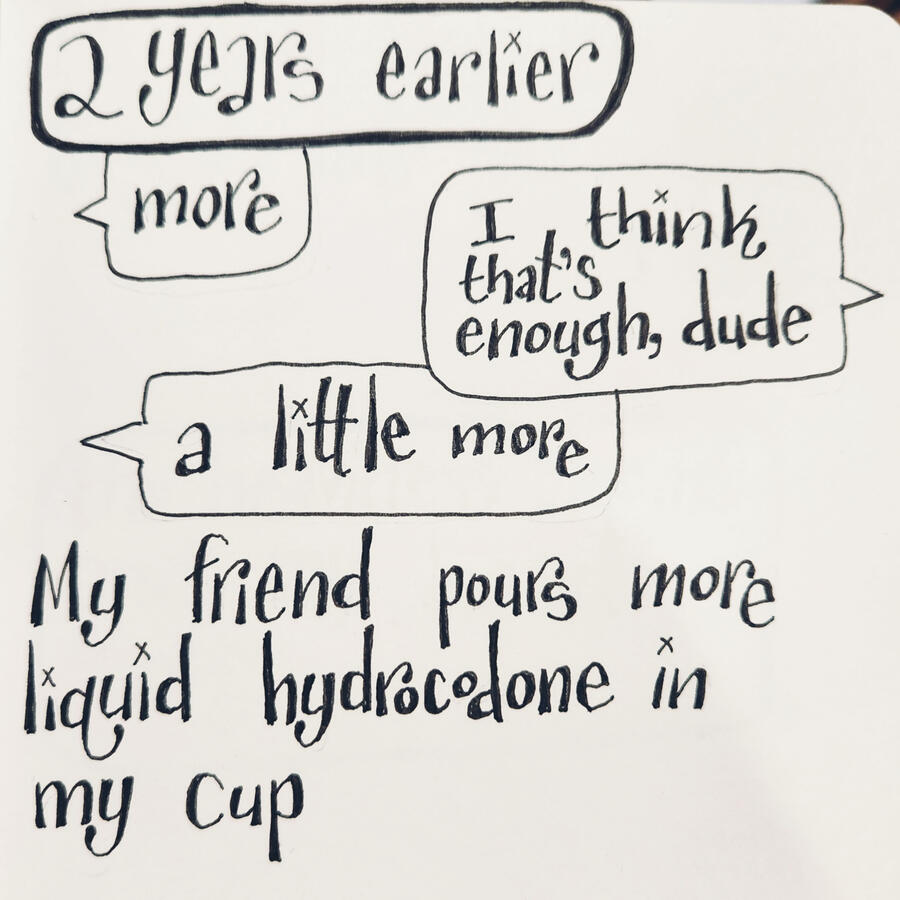 2 years earlier
more
I think
that's
enough, dude
a little more
My friend pours more
liquid hydrocodone in
my cup